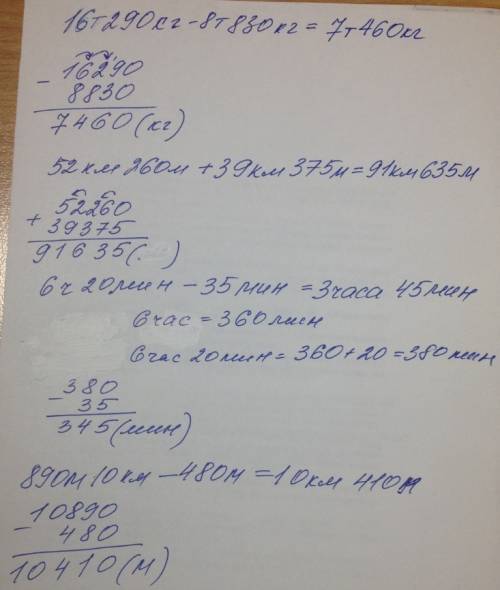 16т290кг-8т830кг=7т460кг
- 16290
8830
7460(кг)
52км 260м +39км 375м=91км635м
+ 52260
39375
91635( )
6ч 20мин -35мин =3часа 45мин
6час =360мин
6час 20мин=360+20=380мин
- 380
35
345(мин)
890м10км -480м=10км 410м
- 10890
480
10410(м)